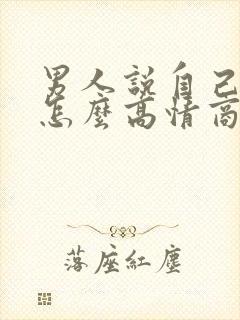 男人說自己
怎麼高情商
落座紅塵